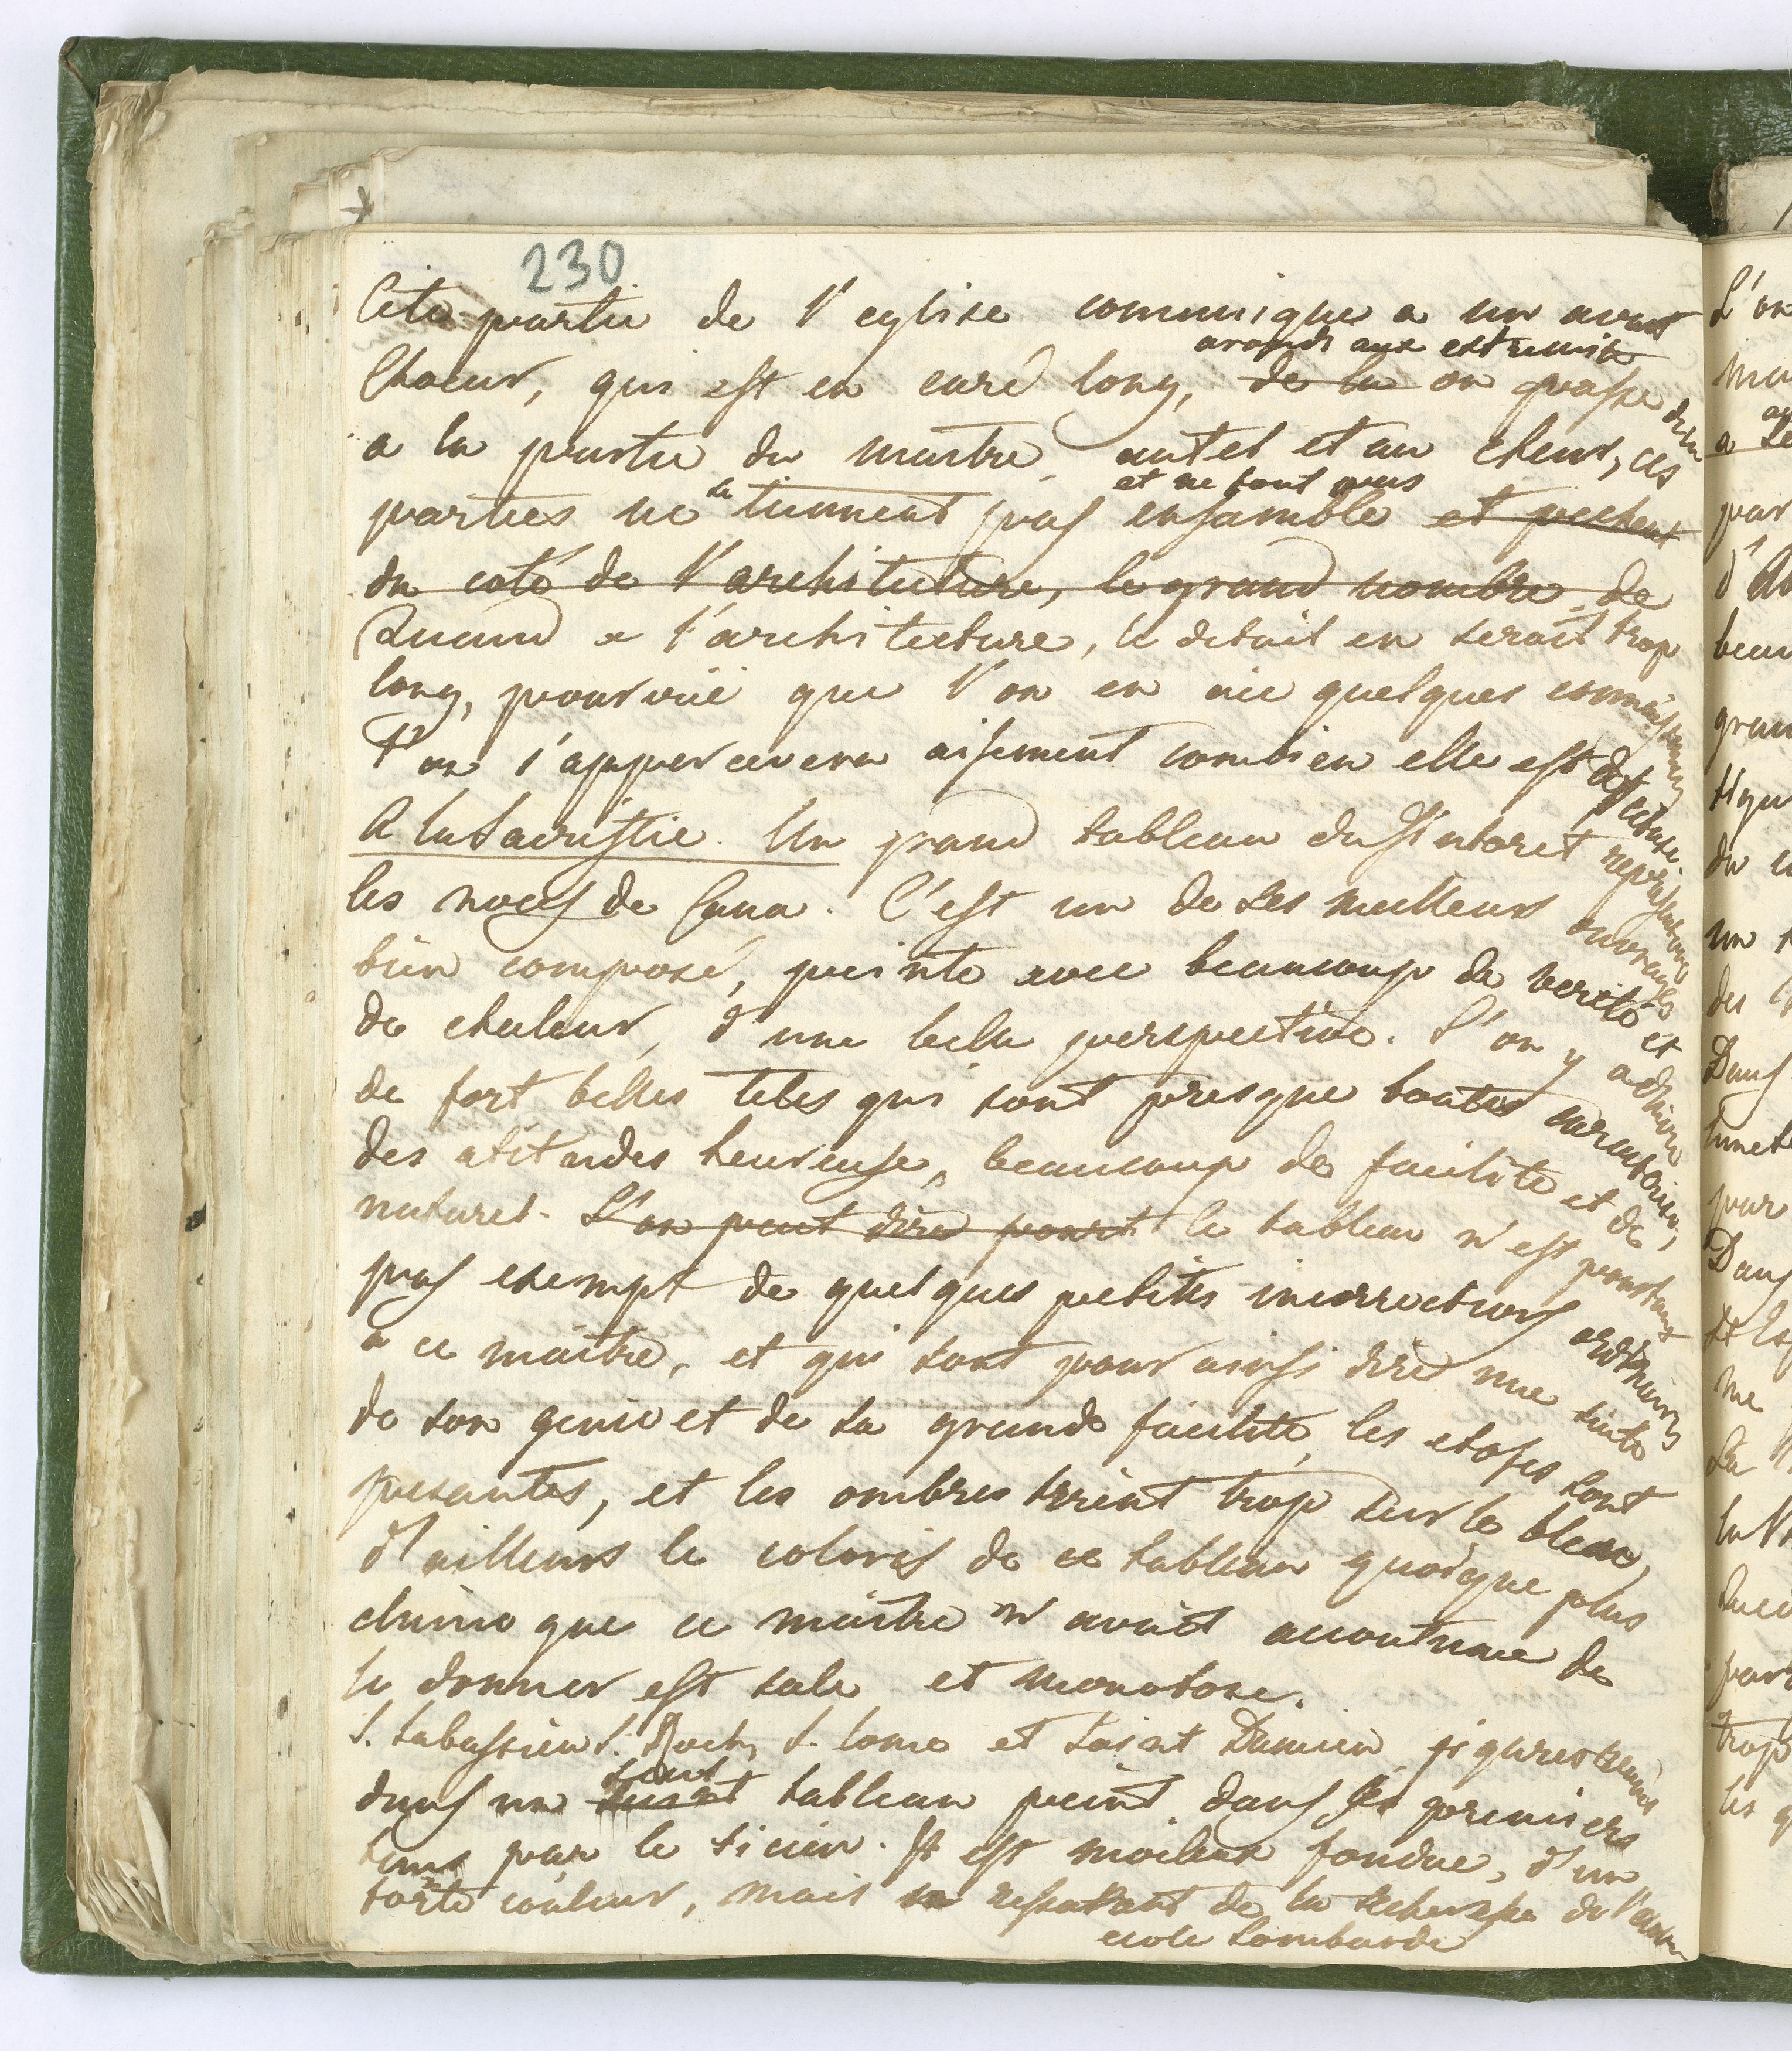 230
Cete partie de l'eglise communique a un avant
arondi aux extremite
Choeur, qui est en caré long, de la on passe de la
a la partie du maitre autel et au cheur, ces
et ne font pas
parties ne se tiennent pas ensamble et pechent
du coté de l'architecture, le grand nombre de
Quand a l'architecture, le detail en serait trop
long, pourvüe que l'on en aie quelques connaissances
l'on s'appercevera aisement combien elle est defectueuse.
A la Sacristie. Un grand tableau du Tintoret representant
les noces de Cana. C'est un de ses meilleurs ouvrages
bien composé, peinte avec beaucoup de verité et
de chaleur, d'une belle perspective. L'on y admire
de fort belles tetes qui sont presque toutes
des atitudes heureuse, beaucoup de facilité et de
naturel. L'on peut dire pourt le tableau n'est pourtant
pas exempt de quelques petites incorrections ordinaires
a ce maitre, et qui sont pour ainsi dire une suite
de son genie et de sa grande facilité, les etofes sont
pesantes, et les ombres tirent trop sur le bleu,
d'ailleurs le coloris de ce tableau quoique plus
clair que ce maitre n'avait accoutume de
le donner est sale et monotone.
S. Sabastien S. Roch, S. Come et Saint Damien figures
dans un tableau peint dans ses premiers
tems par le Ticien. Il est moileux fondue, d'une
forte couleur, mais resentant de la secheresse de l'ancien
ecole Lombarde
L'on